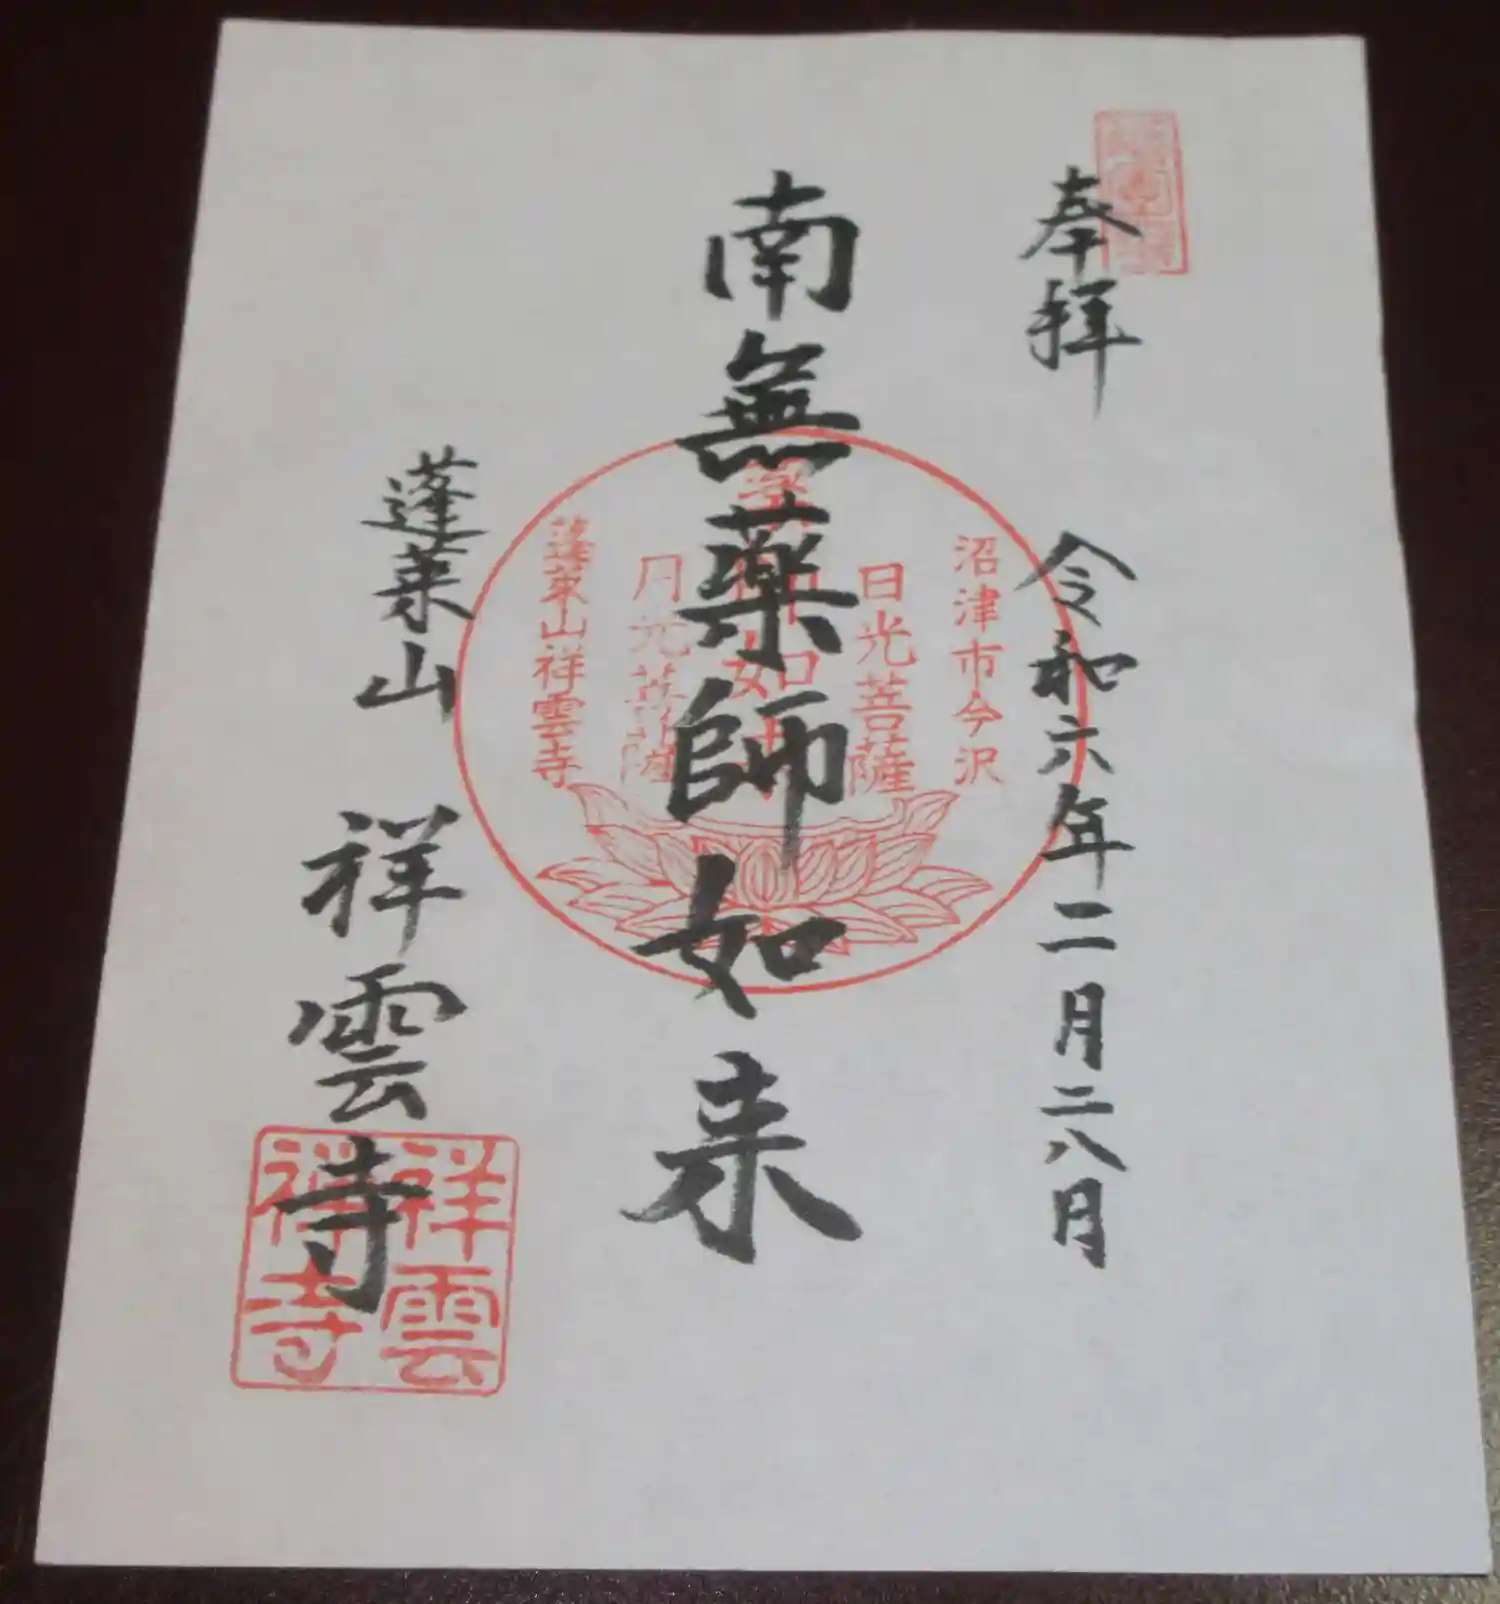 奉拝
令和六年二月二八日
南無薬師如来
沼津市今沢
日光菩薩
月光菩薩
蓬莱山祥雲寺
蓬莱山 祥雲寺
祥雲
禅寺